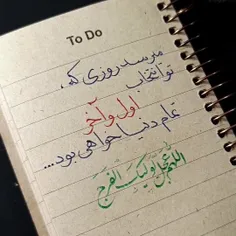 To Do
میرسد روزی که
تو انتخاب
اول و آخر
تمام دنیا خواهی بود...
اللهم عجل لولیک الفرج